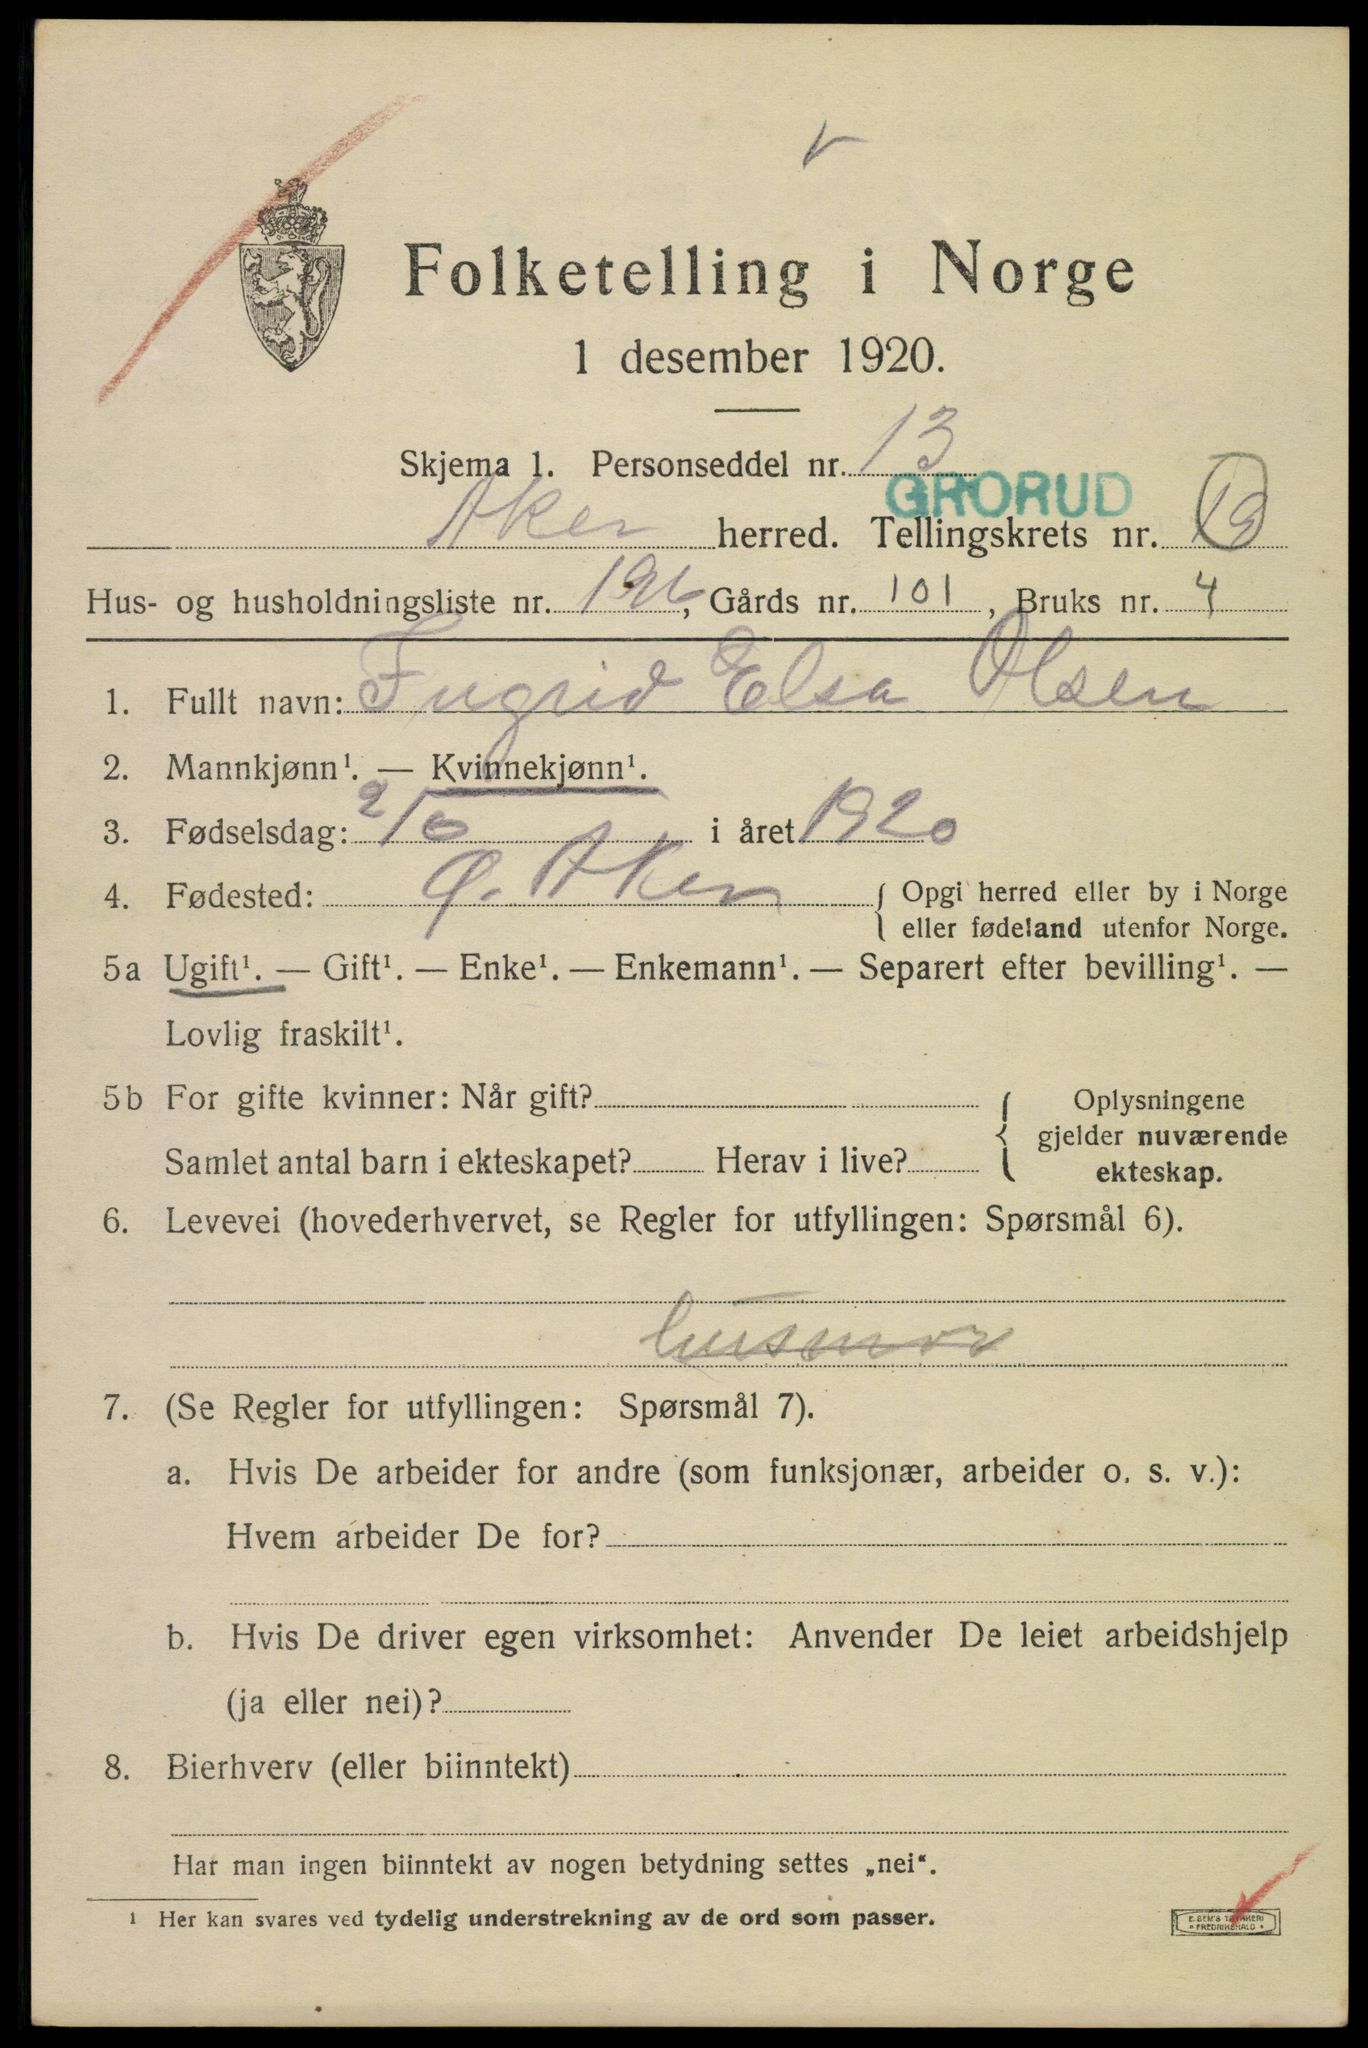 Folketelling i Norge
1 desember 1920.
Skjema 1. Personseddel nr. 13
GRORUD
Aker herred. Tellingskrets nr. 19
Hus- og husholdningsliste nr. 196, Gårds nr. 101, Bruks nr. 4
1. Fullt navn: Ingrid Elsa Olsen
2. Mannkjønn¹. — Kvinnekjønn¹.
3. Fødselsdag: 2/6 i året 1920
4. Fødested: Ø. Aker { Opgi herred eller by i Norge
eller fødeland utenfor Norge.
5a Ugift¹. — Gift¹. — Enke¹. — Enkemann¹. — Separert efter bevilling¹. —
Lovlig fraskilt¹.
5b For gifte kvinner: Når gift?
Samlet antal barn i ekteskapet? Herav i live?
{ Oplysningene
gjelder nuværende
ekteskap.
6. Levevei (hovederhvervet, se Regler for utfyllingen: Spørsmål 6).
husmor
7. (Se Regler for utfyllingen: Spørsmål 7).
a. Hvis De arbeider for andre (som funksjonær, arbeider o. s. v.):
Hvem arbeider De for?
b. Hvis De driver egen virksomhet: Anvender De leiet arbeidshjelp
(ja eller nei)?
8. Bierhverv (eller biinntekt)
Har man ingen biinntekt av nogen betydning settes „nei“.
¹ Her kan svares ved tydelig understrekning av de ord som passer.
E. SEM'S TRYKKERI
FREDRIKSHALD